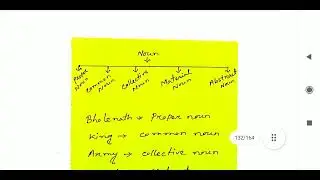 Noun
Proper Noun
Common Noun
Collective Noun
Material Noun
Abstract Noun
Bholenath → Proper noun
King → common noun
Army → collective noun
132/164